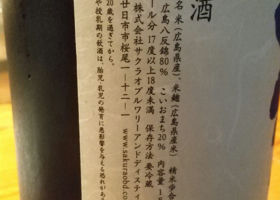 酒
名 米(広島県産)、米麹(広島県産米) 精米歩合
広島八反錦80% こいおまち20% 内容量
ール分 17度以上18度未満 保存方法要冷蔵
株式会社サクラオブルワリーアンドディスティ
廿日市市桜尾一―十二―一 www.sakuraobd.co
20歳を過ぎてから。
や授乳期の飲酒は、胎児・乳児の発育に悪影響を与える恐れがあ